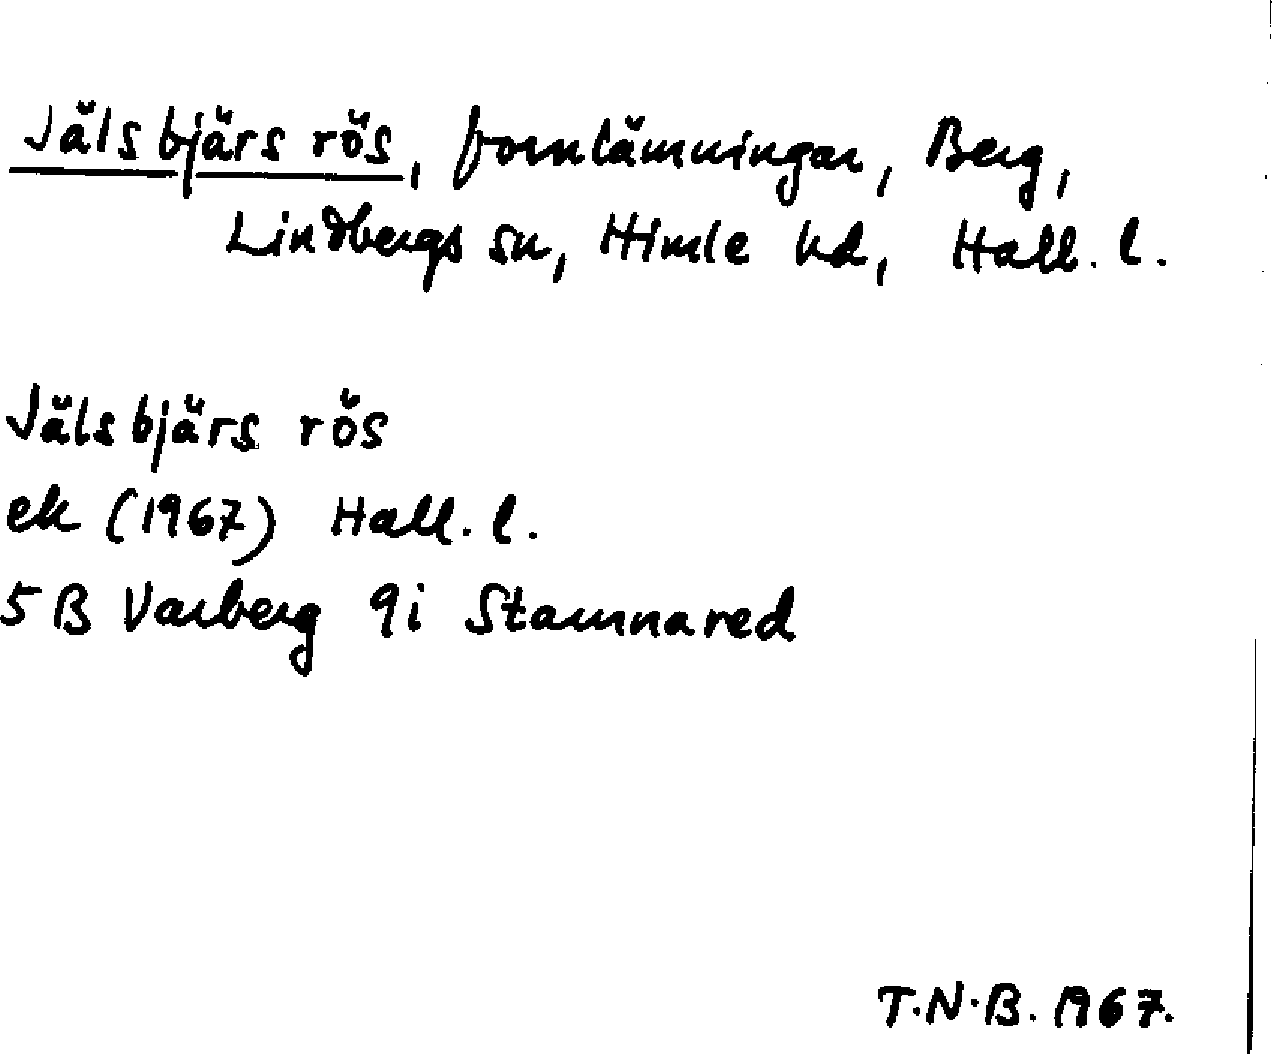 Jälsbjärs rös, fornlämningar, Berg,
Lindbergs sn, Himle hd, Hall. l.
Jälsbjärs rös
ek (1967) Hall. l.
5B Varberg 9i Stamnared
T.N.B. 1967.